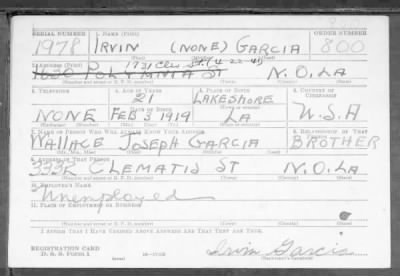 SERIAL NUMBER 1. NAME (Print) ORDER NUMBER
1978 IRVIN (NONE) GARCIA 800
(First) (Middle) (Last)
2. ADDRESS (Print)
1630 POLYMNIA ST N.O. LA
3. TELEPHONE 4. AGE IN YEARS 5. PLACE OF BIRTH 6. COUNTRY OF CITIZENSHIP
21 LAKESHORE
DATE OF BIRTH
NONE FEB 3 1919 LA U.S.A
7. NAME OF PERSON WHO WILL ALWAYS KNOW YOUR ADDRESS 8. RELATIONSHIP OF THAT PERSON
WALLACE JOSEPH GARCIA BROTHER
(Mr., Mrs., Miss) (First) (Middle) (Last)
9. ADDRESS OF THAT PERSON
3332 CLEMATIS ST N.O. LA
10. EMPLOYER'S NAME
Unemployed
11. PLACE OF EMPLOYMENT OR BUSINESS
I AFFIRM THAT I HAVE VERIFIED ABOVE ANSWERS AND THAT THEY ARE TRUE.
REGISTRATION CARD
D. S. S. FORM 1
(over)
Irvin Garcia
(Registrant's signature)